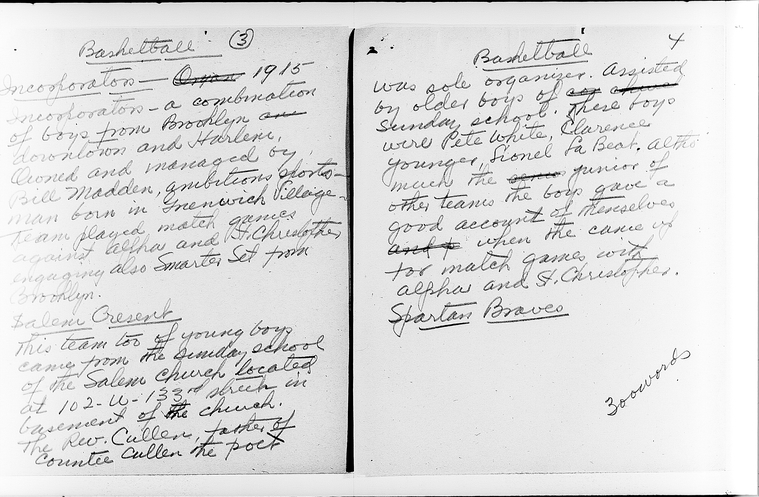 Basketball (3)
Incorporators — Oman 1915
Incorporators - a combination
of boys from Brooklyn
downtown and Harlem,
Owned and managed by
Bill Madden, ambitious sports-
man born in Greenwich Village -
Team played match games
against Alpha and St. Christopher
engaging also Smarter Set from
Brooklyn.
Salem Cresent
This team too of young boys
came from the Sunday school
of the Salem Church located
at 102-W-133rd street in
basement of the church.
The Rev. Cullen, father of
Countee Cullen the poet
Basketball 4
was sole organizer. Assisted
by older boys of
Sunday school. These boys
were Pete White, Clarence
younger, Lionel La Beat. Altho
much the junior of
other teams the boys gave a
good account of themselves
and when the came up
for match games with
alpha and St. Christopher.
Spartan Braves
300 words